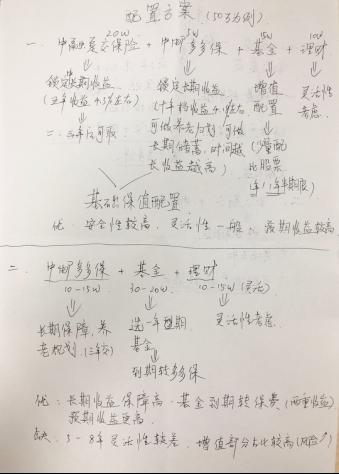 配置方案(50万为例)
20W 5W 15W 10W
一. 中邮 保险 + 中邮多多保 + 基金 + 理财
锁定长期收益 锁定长期收益 增值 灵活性
配置 考虑.
可做养老规划,可做 (少量配
长期储蓄,时间越 比股票
长收益越高)
基础保值配置
优: 安全性较高, 灵活性一般, 预期收益较高
二. 中邮多多保 + 基金 + 理财
10-15W 30-20W 10-15W (灵活)
长期保障,养 选一年 期 灵活性考虑.
老规划.(三年交) 基金
到期转多多保
优: 长期收益保障高. 基金到期转保费(两重收益)
预期收益更高.
缺. 5-8年灵活性较差. 增值部分占比较高(风险↗)